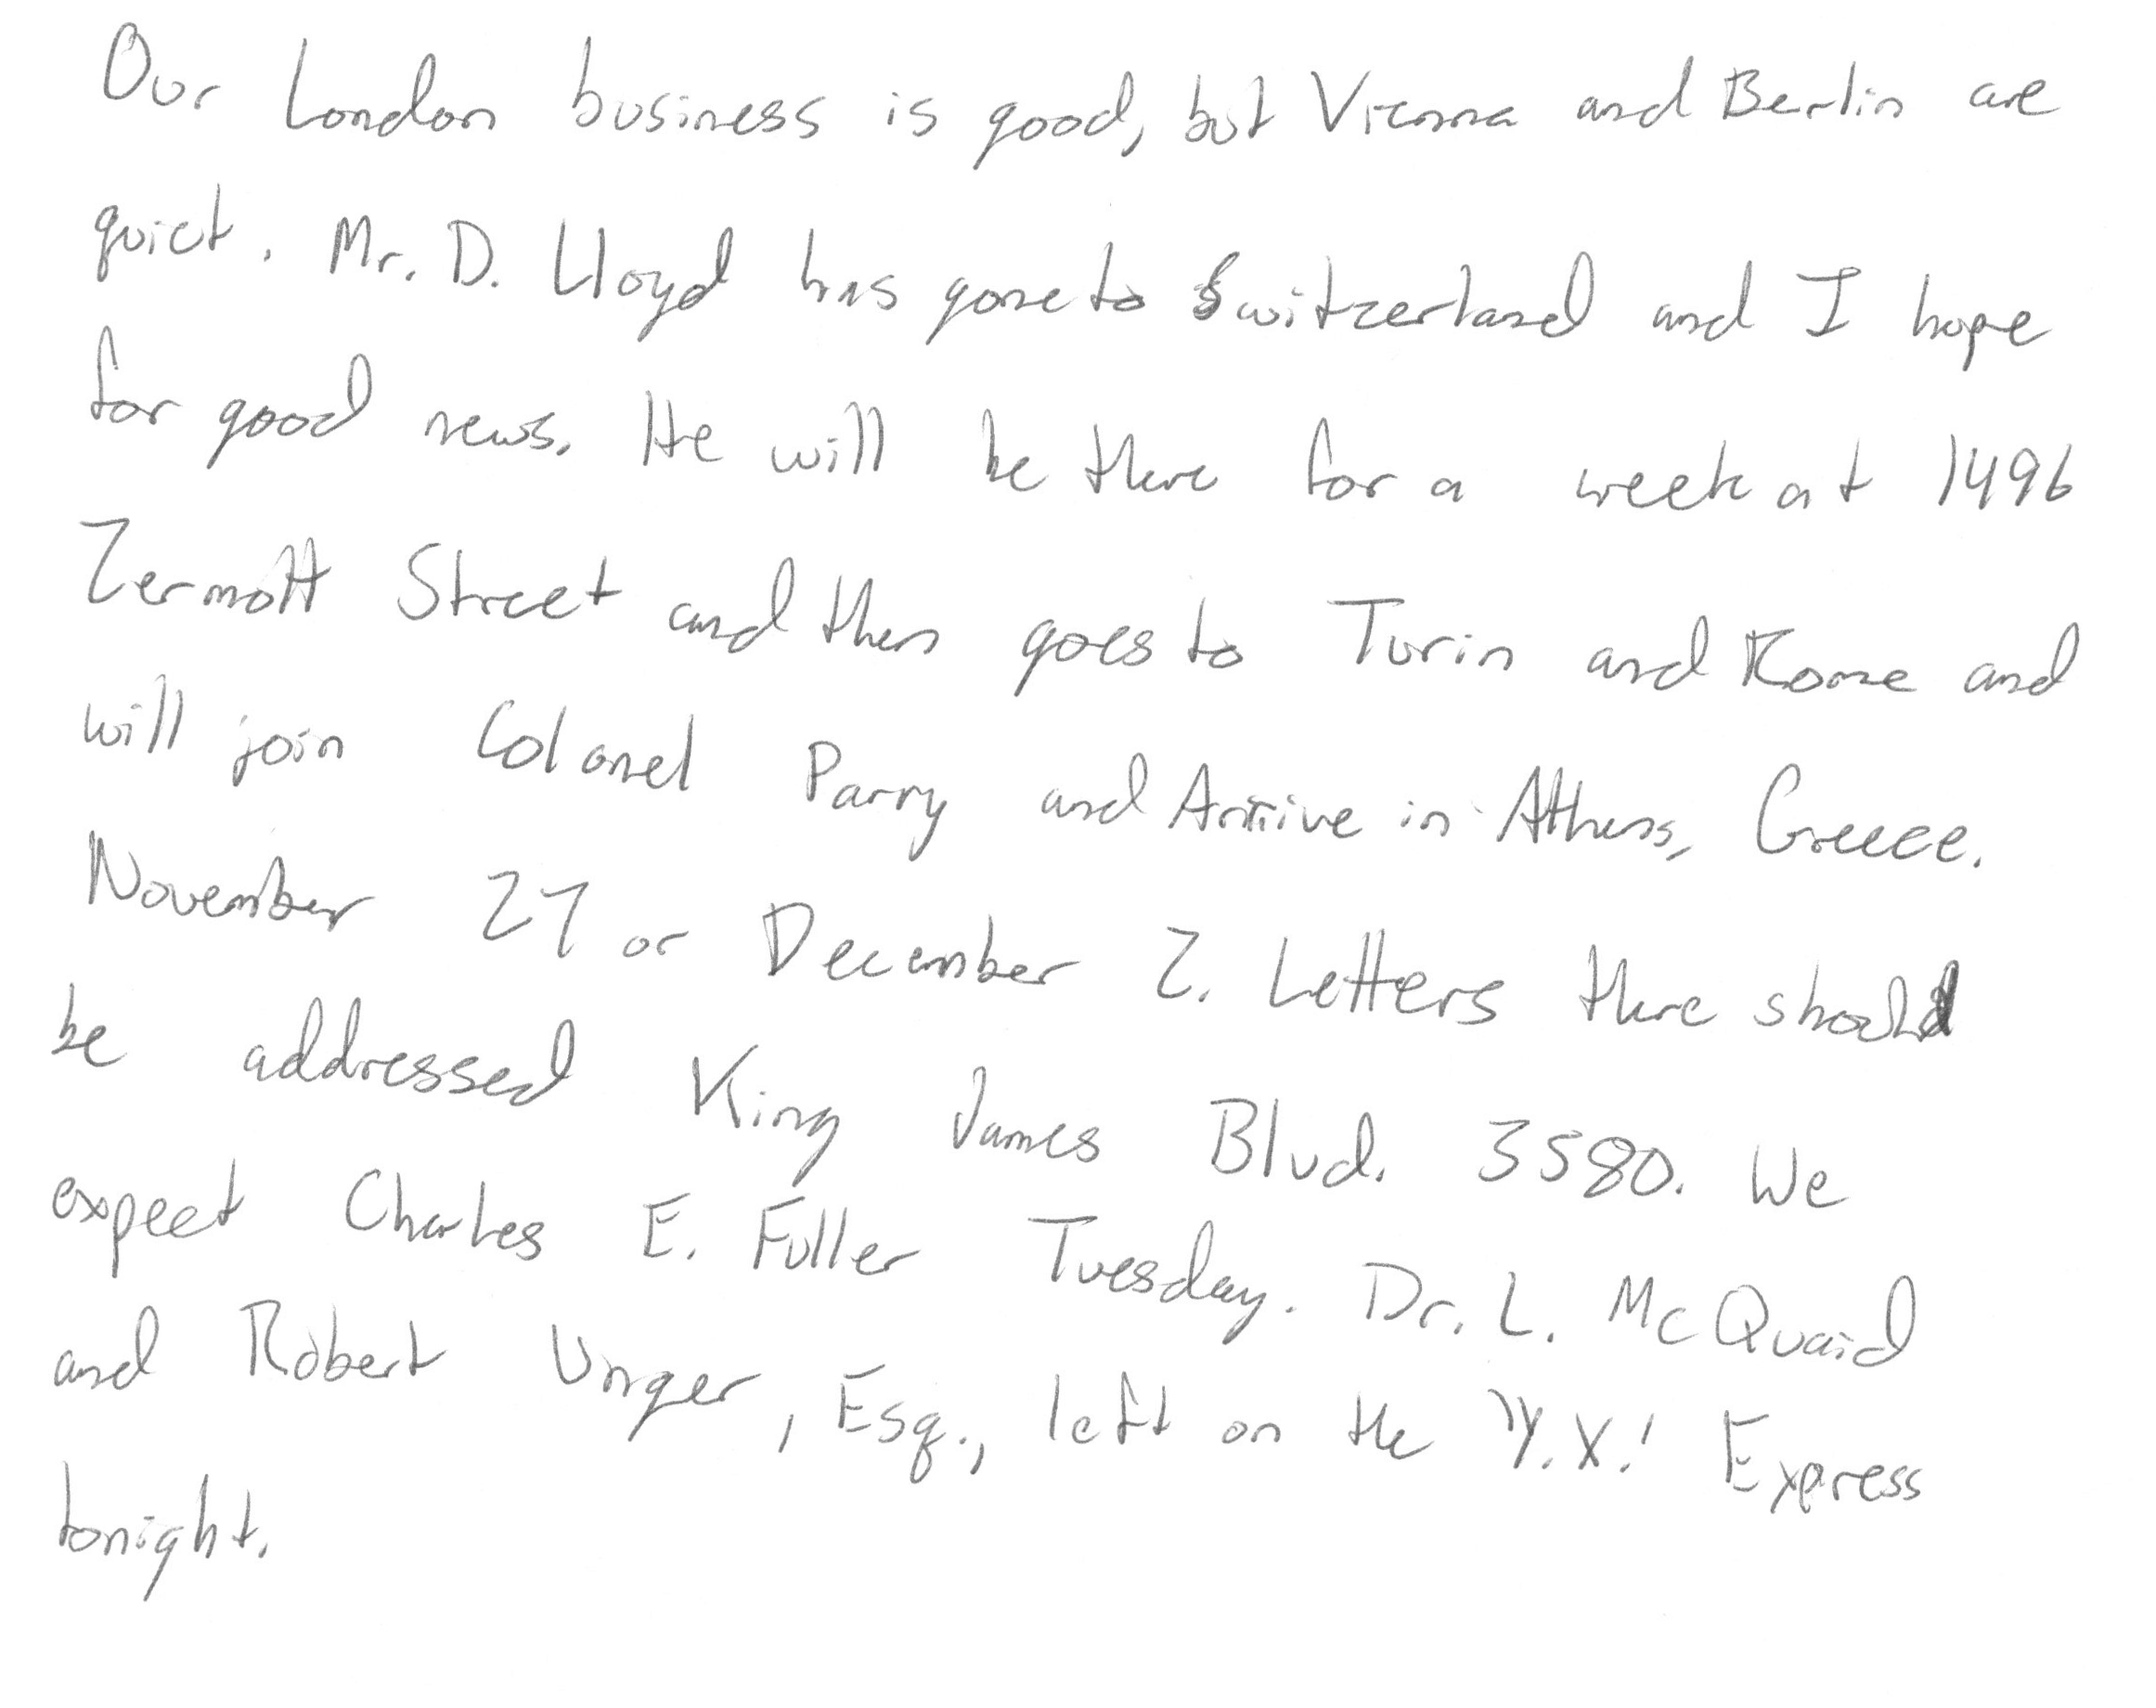 Our London business is good, but Vienna and Berlin are
quiet. Mr. D. Lloyd has gone to Switzerland and I hope
for good news. He will be there for a week at 1496
Zermott Street and then goes to Turin and Rome and
will join Colonel Parry and Arrive in Athens, Greece.
November 27 or December 2. Letters there should
be addressed King James Blvd. 3580. We
expect Charles E. Fuller Tuesday. Dr. L. McQuaid
and Robert Unger, Esq., left on the 'Y.X.' Express
tonight.